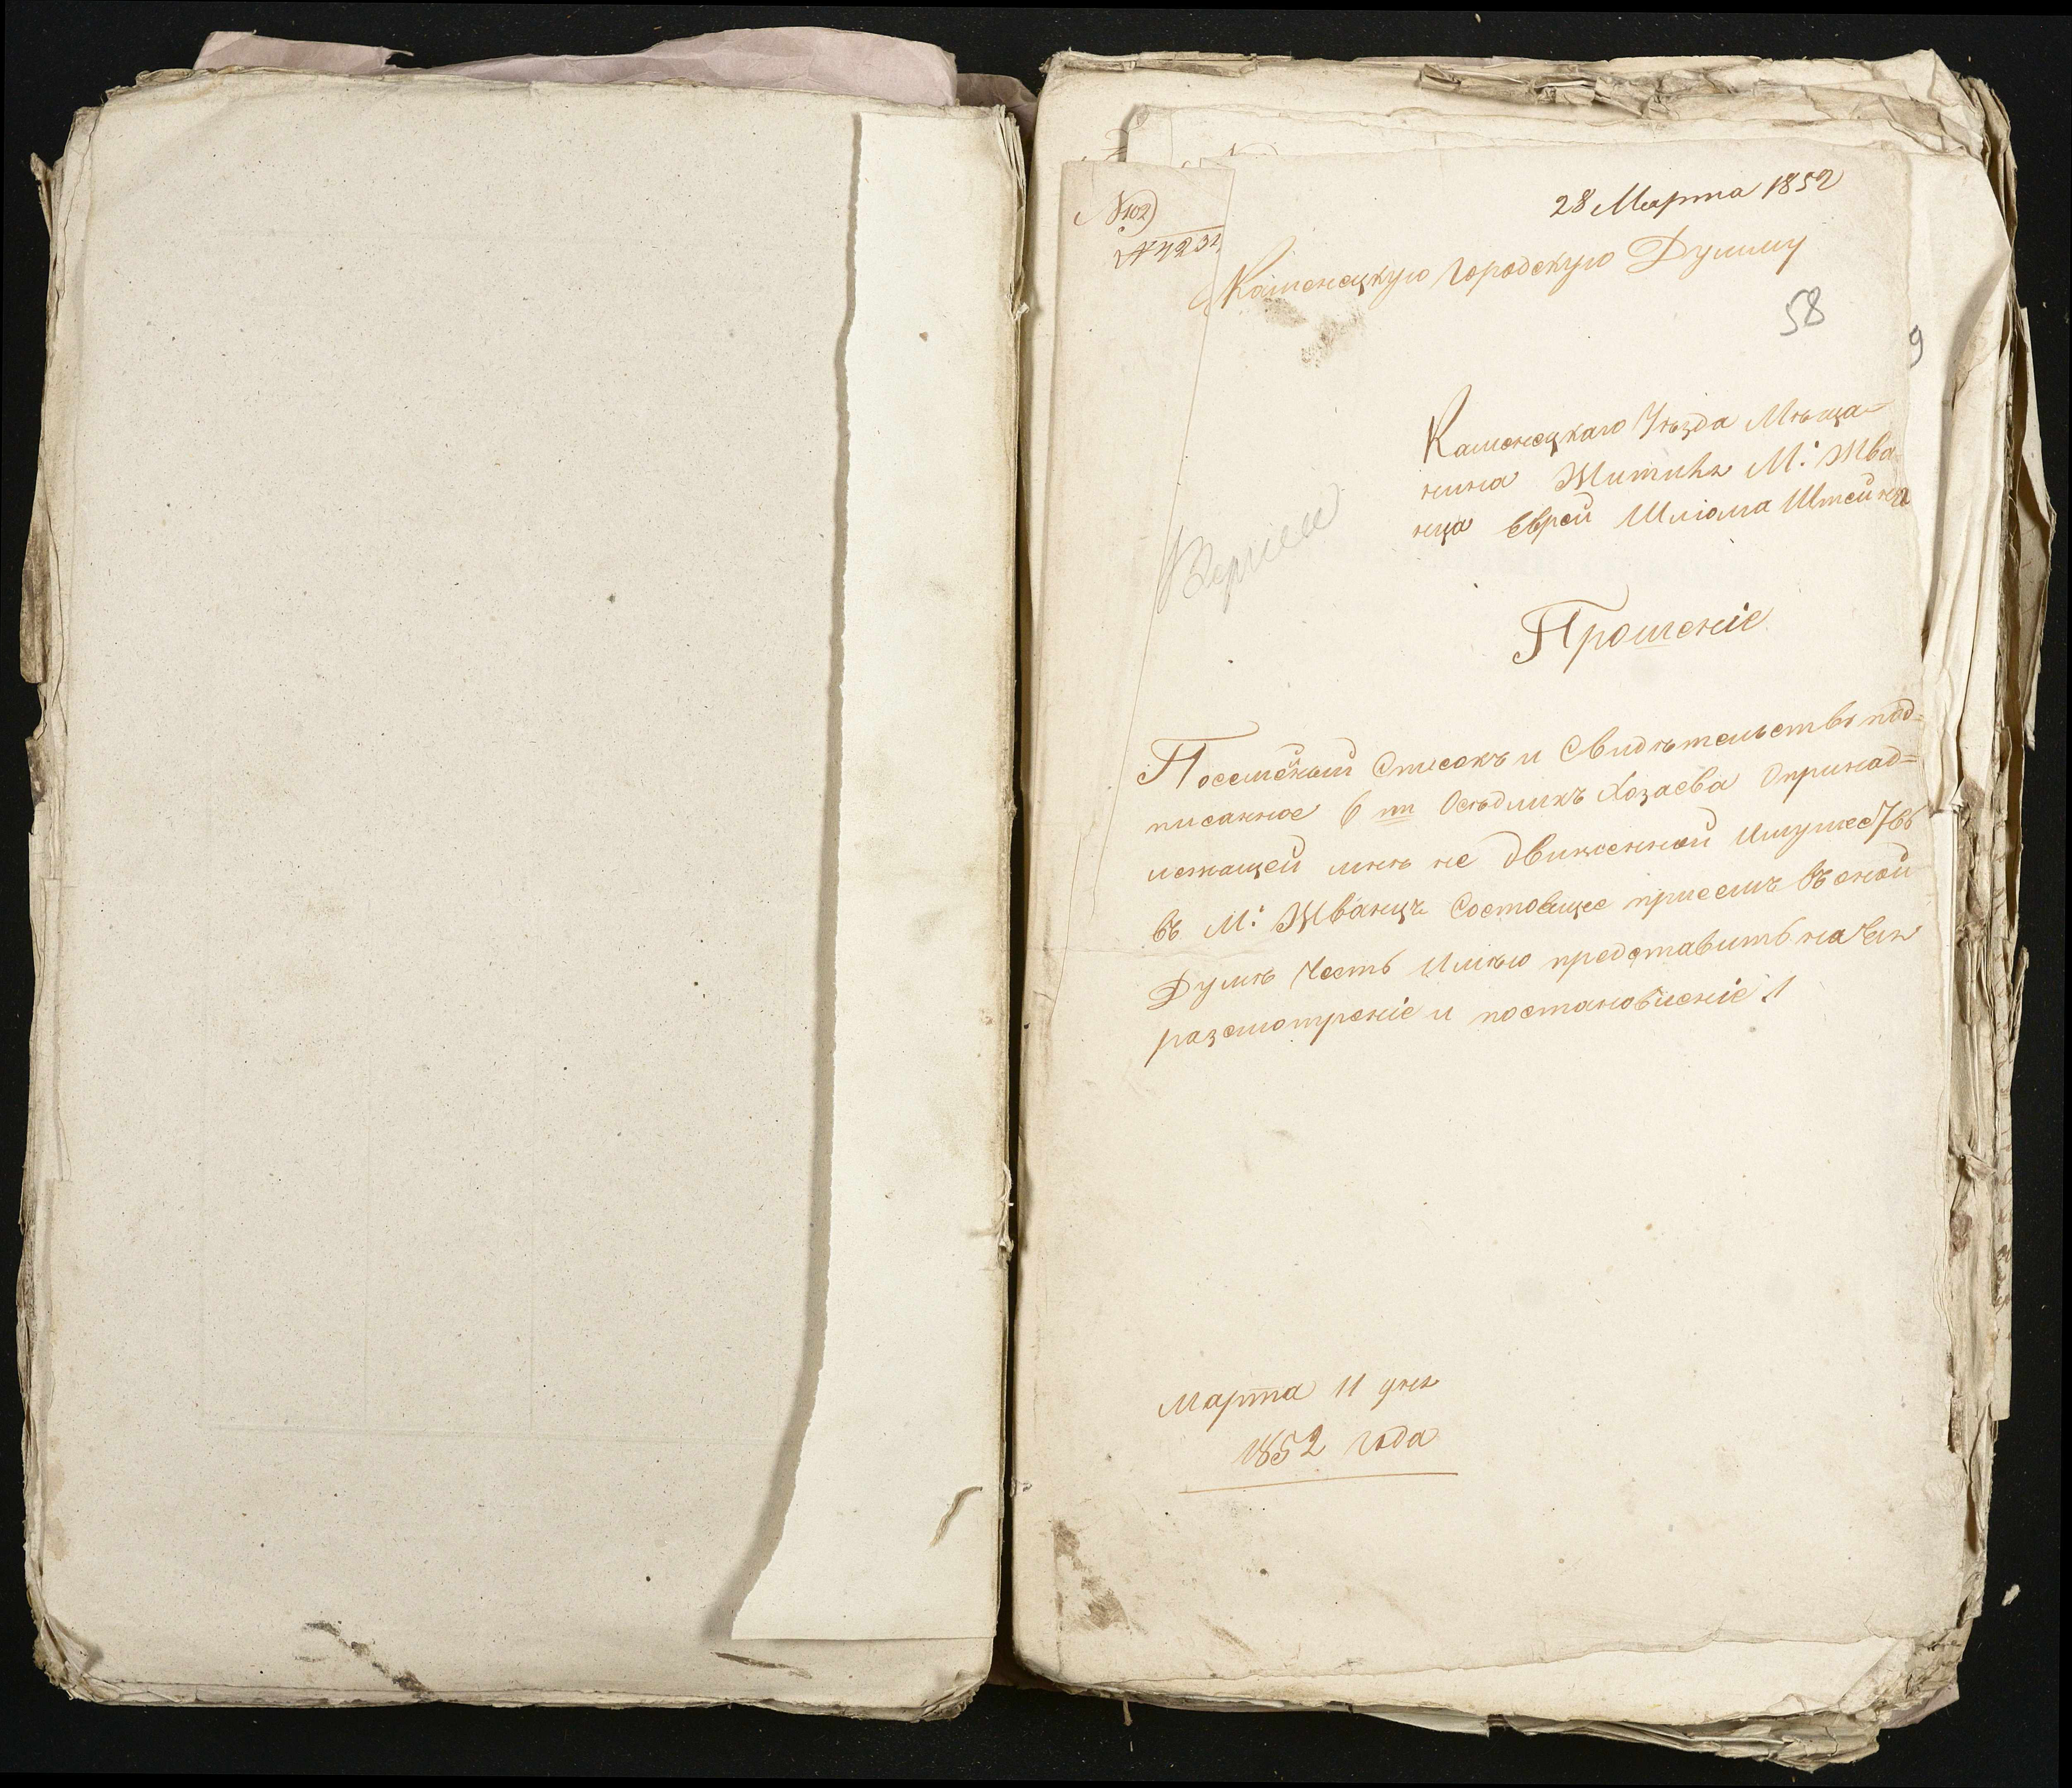 28 Марта 1852
№ 102
№ 4232
Каменецкую Городскую Думму
58
9
Каменецкаго Уѣзда Мѣща=
нина Жителя М: Жва
нца Еврей Шлiома Штейна
Прошенiе
Посемейный Списокъ и Свидѣтельство под=
писанное 6 ти Осѣдлихъ Хозаева Опринад=
лежащей мнѣ не движенной Имущество
въ М: Жванцѣ Состоящее присемъ Въ оной
Думѣ Честь Имѣю представить на Ея
разсмотренiе и постановленiе
Марта 11 дня
1852 года